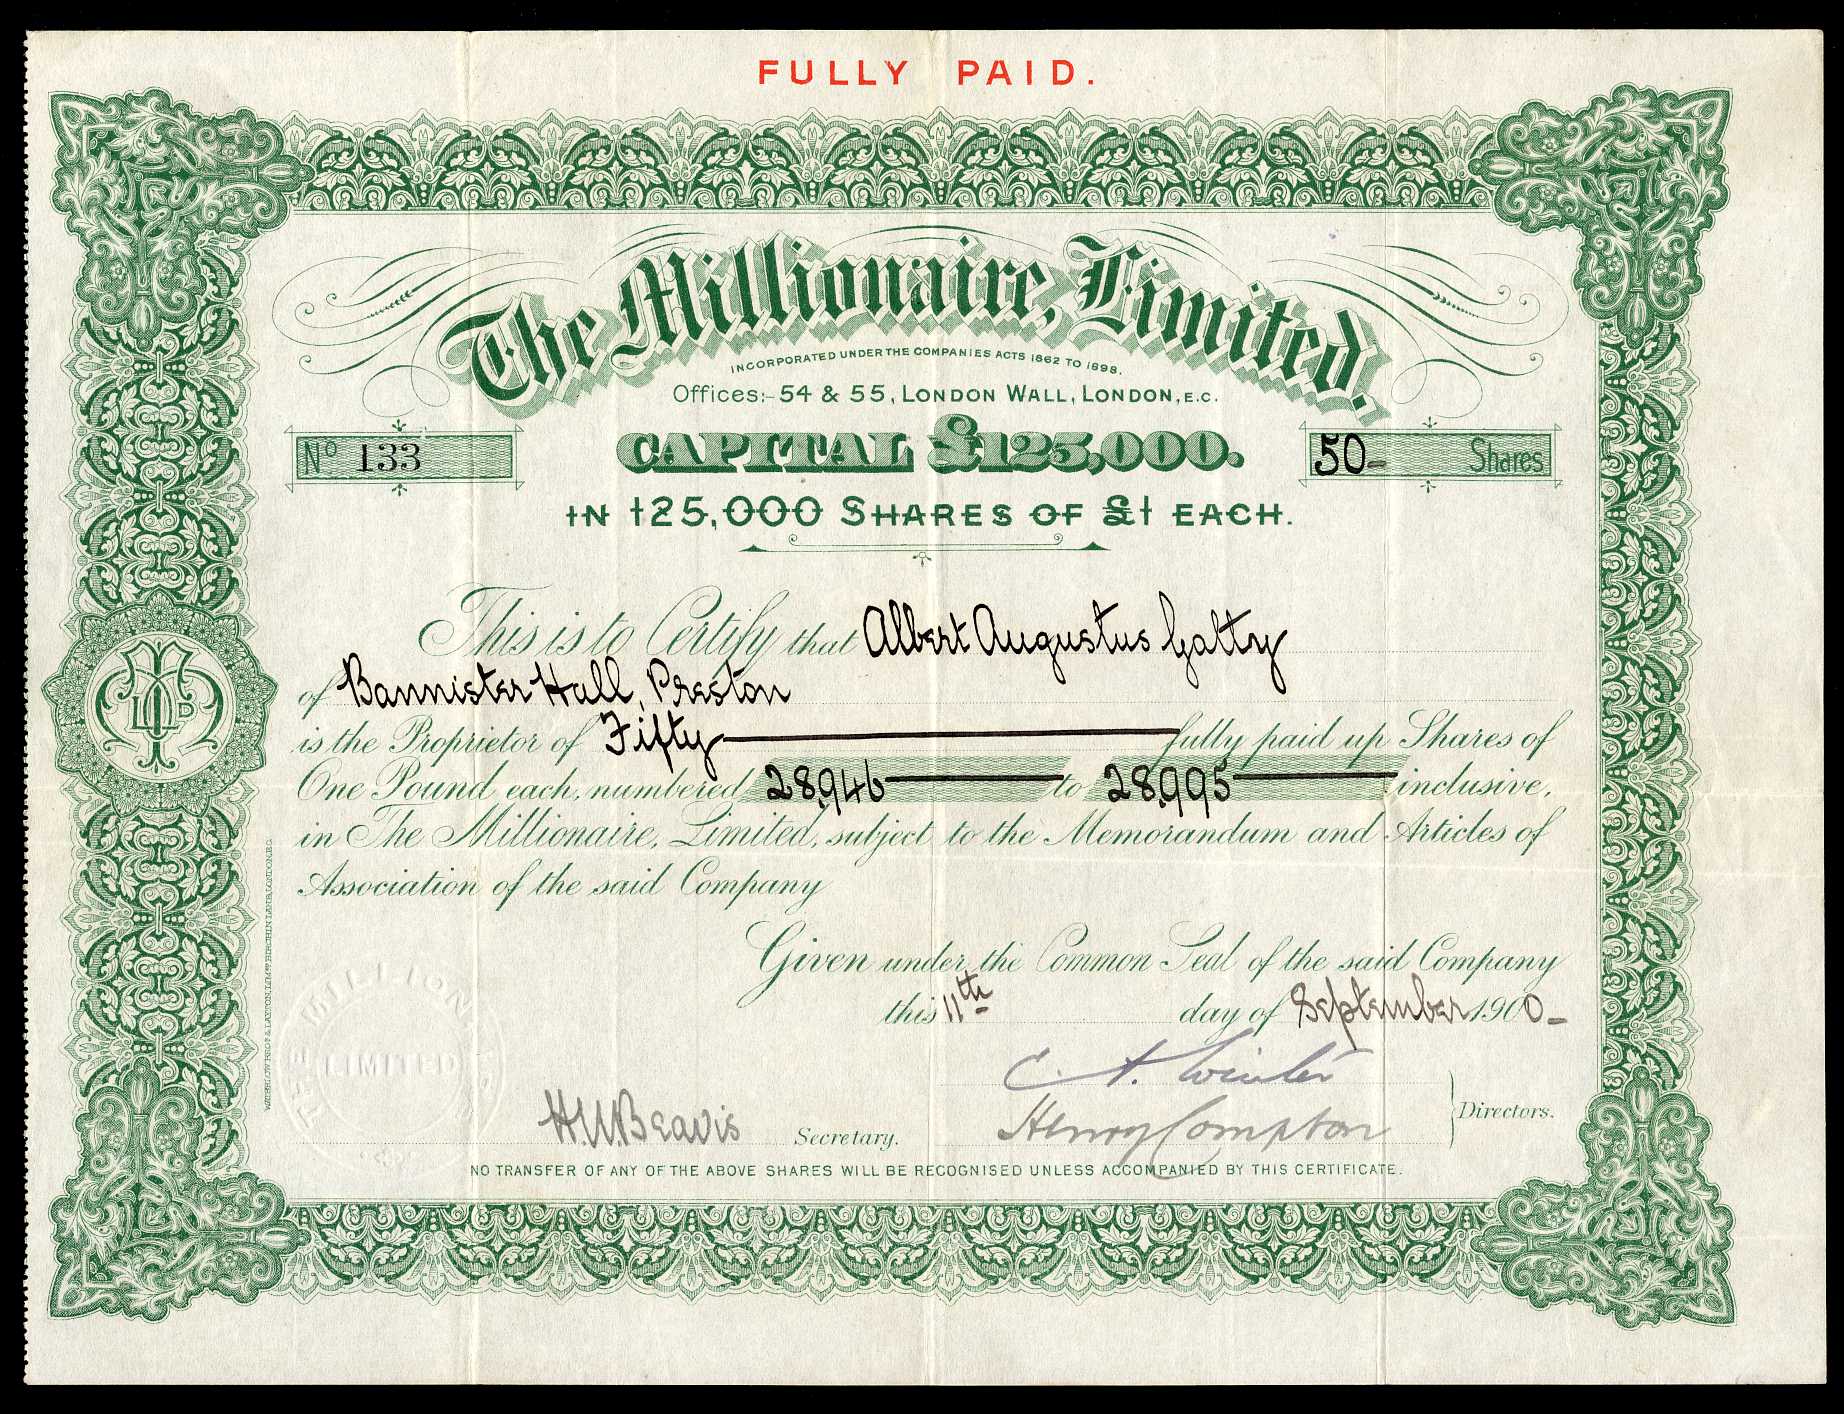 FULLY PAID.
The Millionaire, Limited.
INCORPORATED UNDER THE COMPANIES ACTS 1862 TO 1898.
Offices:- 54 & 55, LONDON WALL, LONDON, E.C.
No 133
CAPITAL £125,000.
50- Shares
IN 125,000 SHARES OF £1 EACH.
This is to Certify that Albert Augustus Gatty
of Bannister Hall, Preston
is the Proprietor of Fifty fully paid up Shares of
One Pound each, numbered 28,946 to 28,995 inclusive,
in The Millionaire, Limited, subject to the Memorandum and Articles of
Association of the said Company
Given under the Common Seal of the said Company
this 11th day of September 1900-
THE MILLIONAIRE
LIMITED
C. A. Winter
Henry Compton
Directors.
H.W. Beavis Secretary.
NO TRANSFER OF ANY OF THE ABOVE SHARES WILL BE RECOGNISED UNLESS ACCOMPANIED BY THIS CERTIFICATE.